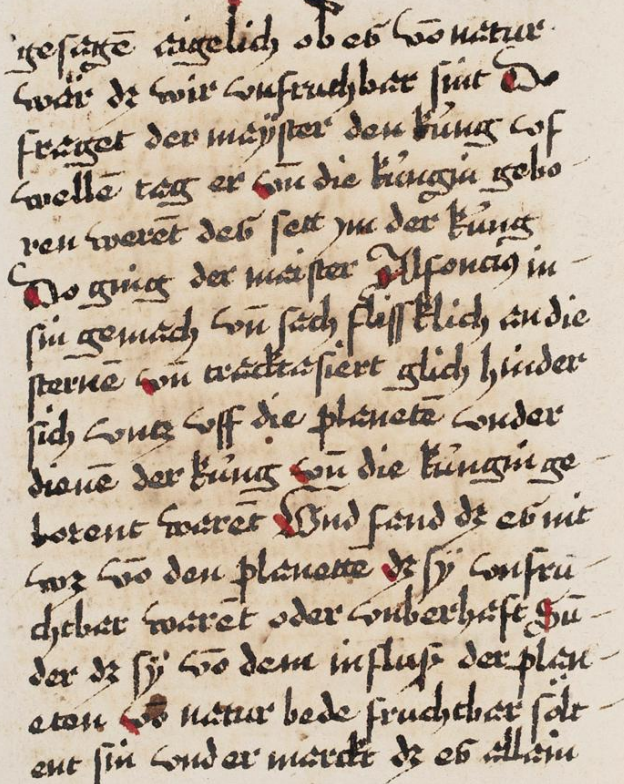 gesagē aigelich ob es vō natur
wär dz wir vnfruchbar sint Do
fraget der mayster den kúng vf
wellē tag er vn̄ die kúngin gebo-
ren werēt des seit ym der kúng
Do ging der maister Alfoncius in-
sin gemach vn̄ sach flissklich an die
sternē vn̄ tracktasiert glich hinder
sich vntz vff die planetē vnder
dienē der kúng vn̄ die kúngin ge-
borent warēt Vnd fand dz es nit
wz vō den planettē dz sÿ vnfru-
chtbar warēt oder vnberhaft Sū-
der dz sÿ vō dem influß der plan-
eten vō natur bede fruchtbar sölt-
ent sin vnd er marckt dz es allain